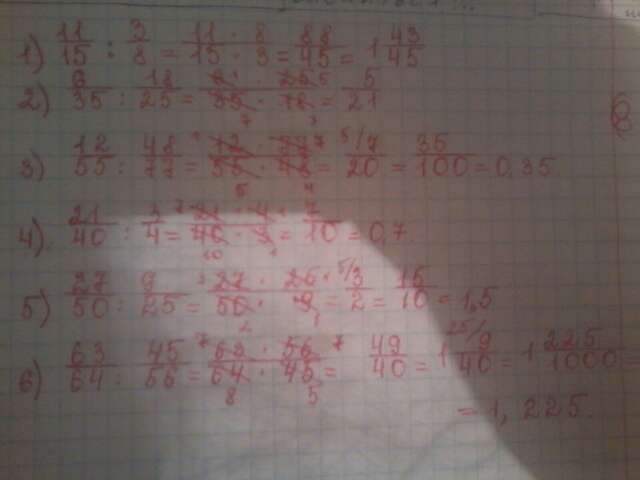 1) 11/15 : 3/8 = 11 · 8/15 · 3 = 88/45 = 1 43/45
2) 6/35 : 18/25 = 6 · 25/35 · 18 = 5/21
3) 12/55 : 48/77 = 12 · 77/55 · 48 = 7/20 = 35/100 = 0,35
4) 21/40 : 3/4 = 21 · 4/40 · 3 = 7/10 = 0,7.
5) 27/50 : 9/25 = 27 · 25/50 · 9 = 3/2 = 15/10 = 1,5
6) 63/64 : 45/56 = 63 · 56/64 · 45 = 49/40 = 1 9/40 = 1 225/1000 =
= 1, 225.